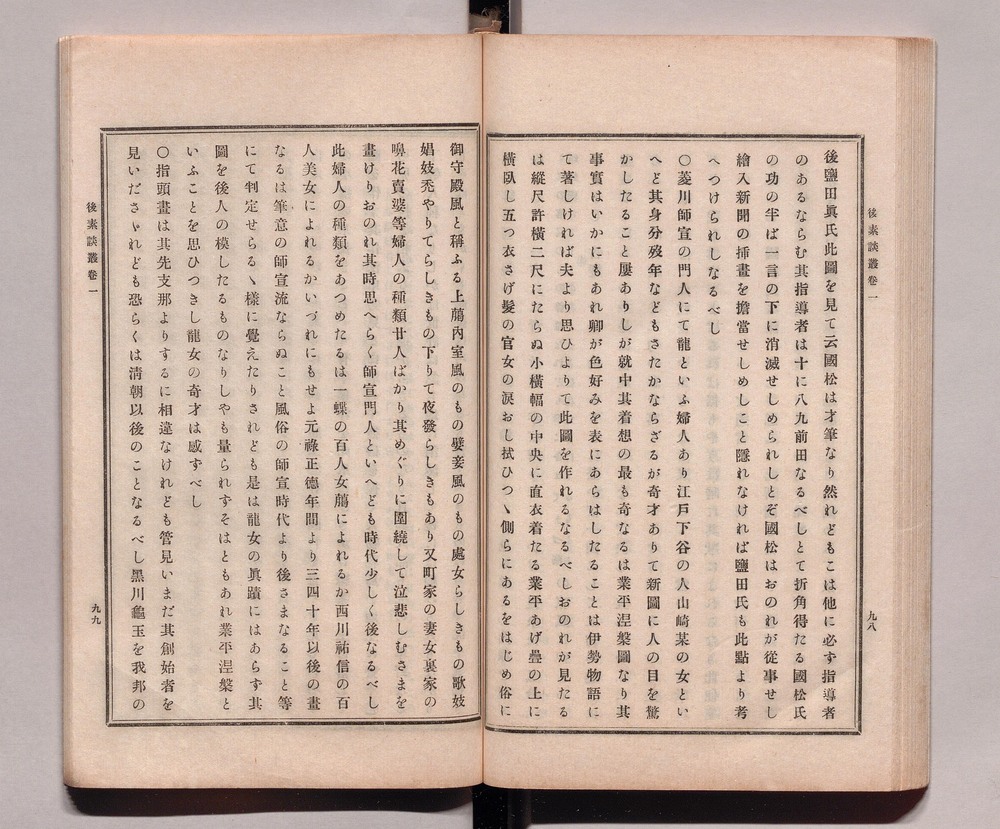 後素談叢卷一
九八
後鹽田眞氏此圖を見て云國松は才筆なり然れどもこは他に必す指導者
のあるならむ其指導者は十に八九前田なるべしとて折角得たる國松氏
の功の半ば一言の下に消滅せしめられしとぞ國松はおのれが從事せし
繪入新聞の挿畫を擔當せしめしこと隱れなければ鹽田氏も此點より考
へつけられしなるべし
〇菱川師宣の門人にて龍といふ婦人あり江戸下谷の人山崎某の女とい
へど其身分歿年などもさたかならざるが奇才ありて新圖に人の目を驚
かしたること屢ありしが就中其着想の最も奇なるは業平涅槃圖なり其
事實はいかにもあれ卿が色好みを表にあらはしたることは伊勢物語に
て著しければ夫より思ひよりて此圖を作れるなるべしおのれが見たる
は縱尺許橫二尺にたらぬ小橫幅の中央に直衣着たる業平あげ疊の上に
橫臥し五つ衣さげ髮の官女の淚おし拭ひつヽ側らにあるをはじめ俗に
御守殿風と稱ふる上﨟內室風のもの嬖妾風のもの處女らしきもの歌妓
娼妓禿やりてらしきもの下りて夜發らしきもあり又町家の妻女裏家の
嚊花賣婆等婦人の種類廿人ばかり其めぐりに圍繞して泣悲しむさまを
畫けりおのれ其時思へらく師宣門人といへども時代少しく後なるべし
此婦人の種類をあつめたるは一蝶の百人女﨟によれるか西川祐信の百
人美女によれるかいづれにもせよ元祿正德年間より三四十年以後の畫
なるは筆意の師宣流ならぬこと風俗の師宣時代より後さまなること等
にて判定せらるヽ樣に覺えたりされども是は龍女の眞蹟にはあらす其
圖を後人の模したるものなりしやも量られすそはともあれ業平涅槃と
いふことを思ひつきし龍女の奇才は感ずべし
〇指頭畫は其先支那よりするに相違なけれども管見いまだ其創始者を
見いださヾれども恐らくは清朝以後のことなるべし黑川龜玉を我邦の
後素談叢卷一
九九